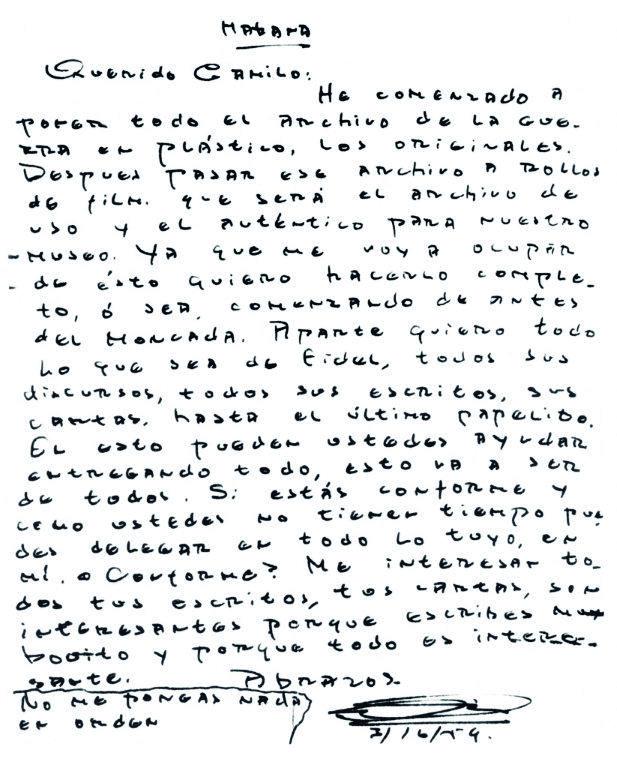 Habana
Querido Camilo:
He comenzado a
poner todo el archivo de la gue-
rra en plástico, los originales.
Despues pasar ese archivo a rollos
de film. que será el archivo de
uso y el auténtico para nuestro
- museo. Ya que me voy a ocupar
- de ésto quiero hacerlo comple-
to, ó sea, comenzando de antes
del Moncada. Aparte quiero todo
lo que sea de Fidel, todos sus
discursos, todos sus escritos, sus
cartas, hasta el último papelito.
En esto pueden ustedes ayudar
entregando todo, esto va a ser
de todos. Si estás conforme y
como ustedes no tienen tiempo pue
des delegar en todo lo tuyo, en
mí. o Conforme? Me interesan to-
dos tus escritos, tus cartas, son
interesantes porque escribes muy
bonito y porque todo es intere-
sante. Abrazos-
No me pongas nada
en orden
2/16/59.